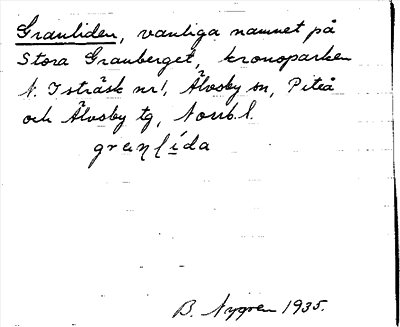 Granliden, vanliga namnet på
Stora Granberget, kronoparken
N. Isträsk nr 1, Älvsby sn, Piteå
och Älvsby tg, Norrb. l.
granlida
B. Nygren 1935.